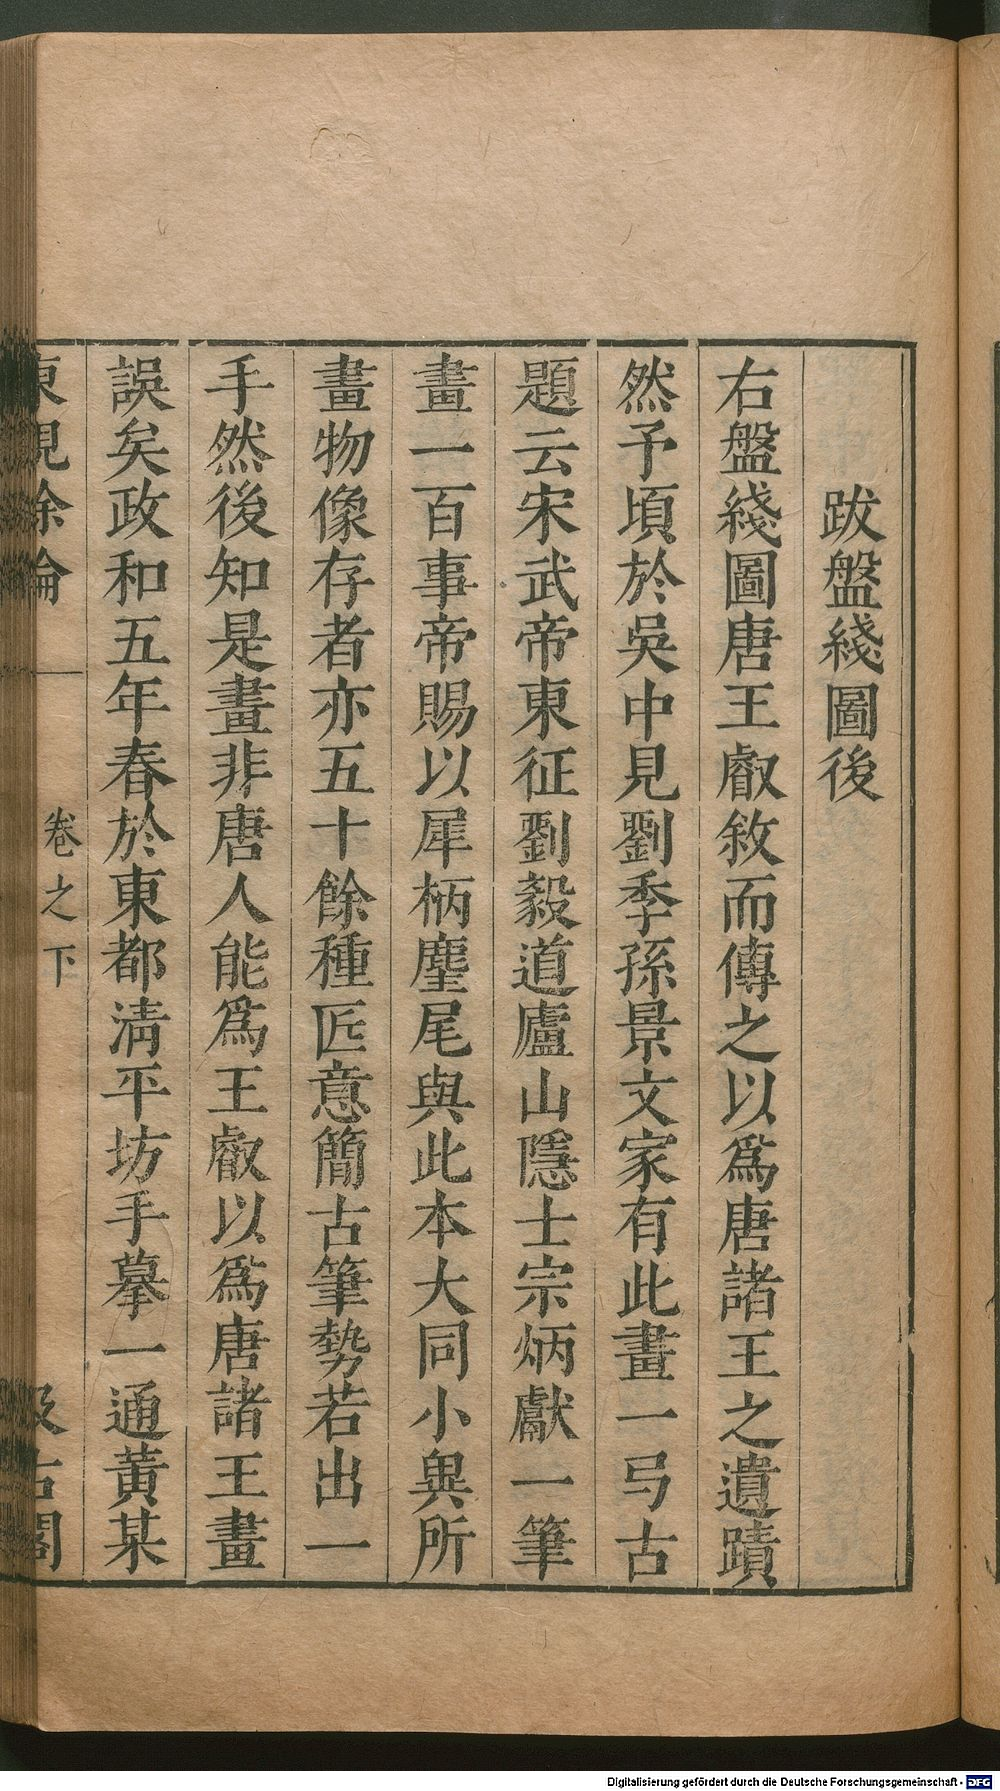 跋盤綫圖後
右盤綫圖唐王叡敘而傳之以爲唐諸王之遺蹟
然予頃於吳中見劉季孫景文家有此畫一弓古
題云宋武帝東征劉毅道廬山隱士宗炳獻一筆
畫一百事帝賜以犀柄麈尾與此本大同小異所
畫物像存者亦五十餘種匠意簡古筆勢若出一
手然後知是畫非唐人能爲王叡以爲唐諸王畫
誤矣政和五年春於東都清平坊手摹一通黄某
東觀餘論 卷之下 汲古閣
Digitalisierung gefördert durch die Deutsche Forschungsgemeinschaft - DFG